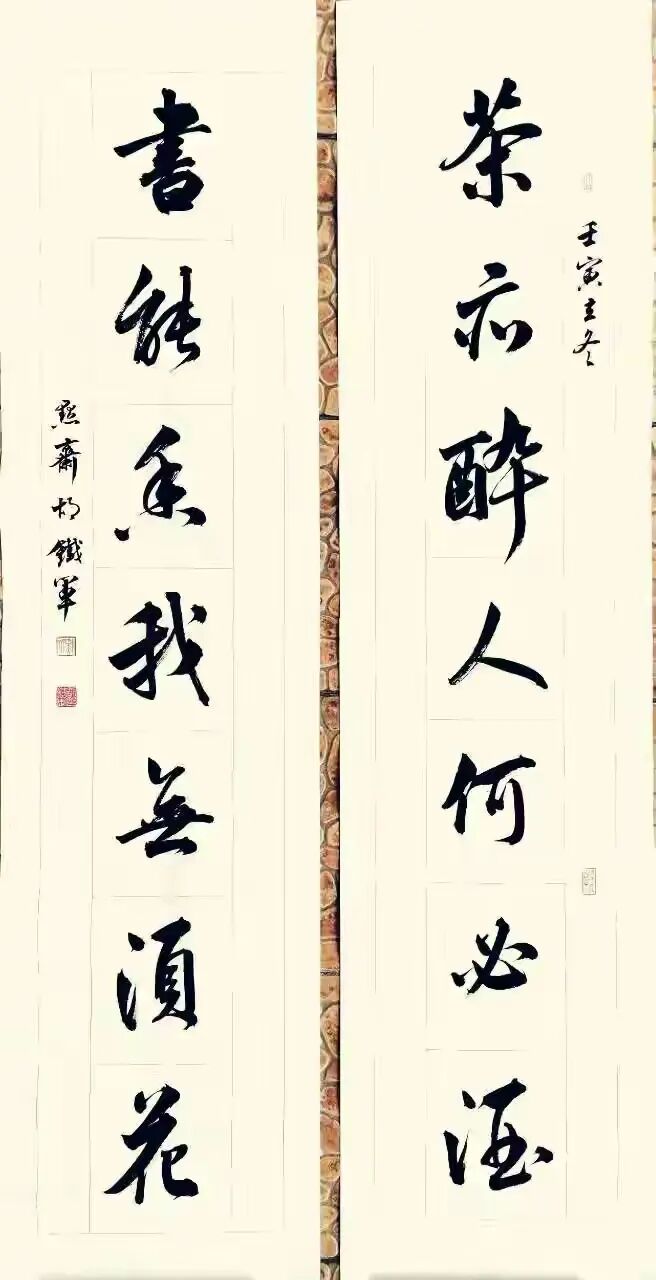 壬寅立冬
茶亦醉人何必酒
書能香我無須花
點齋胡鐵軍